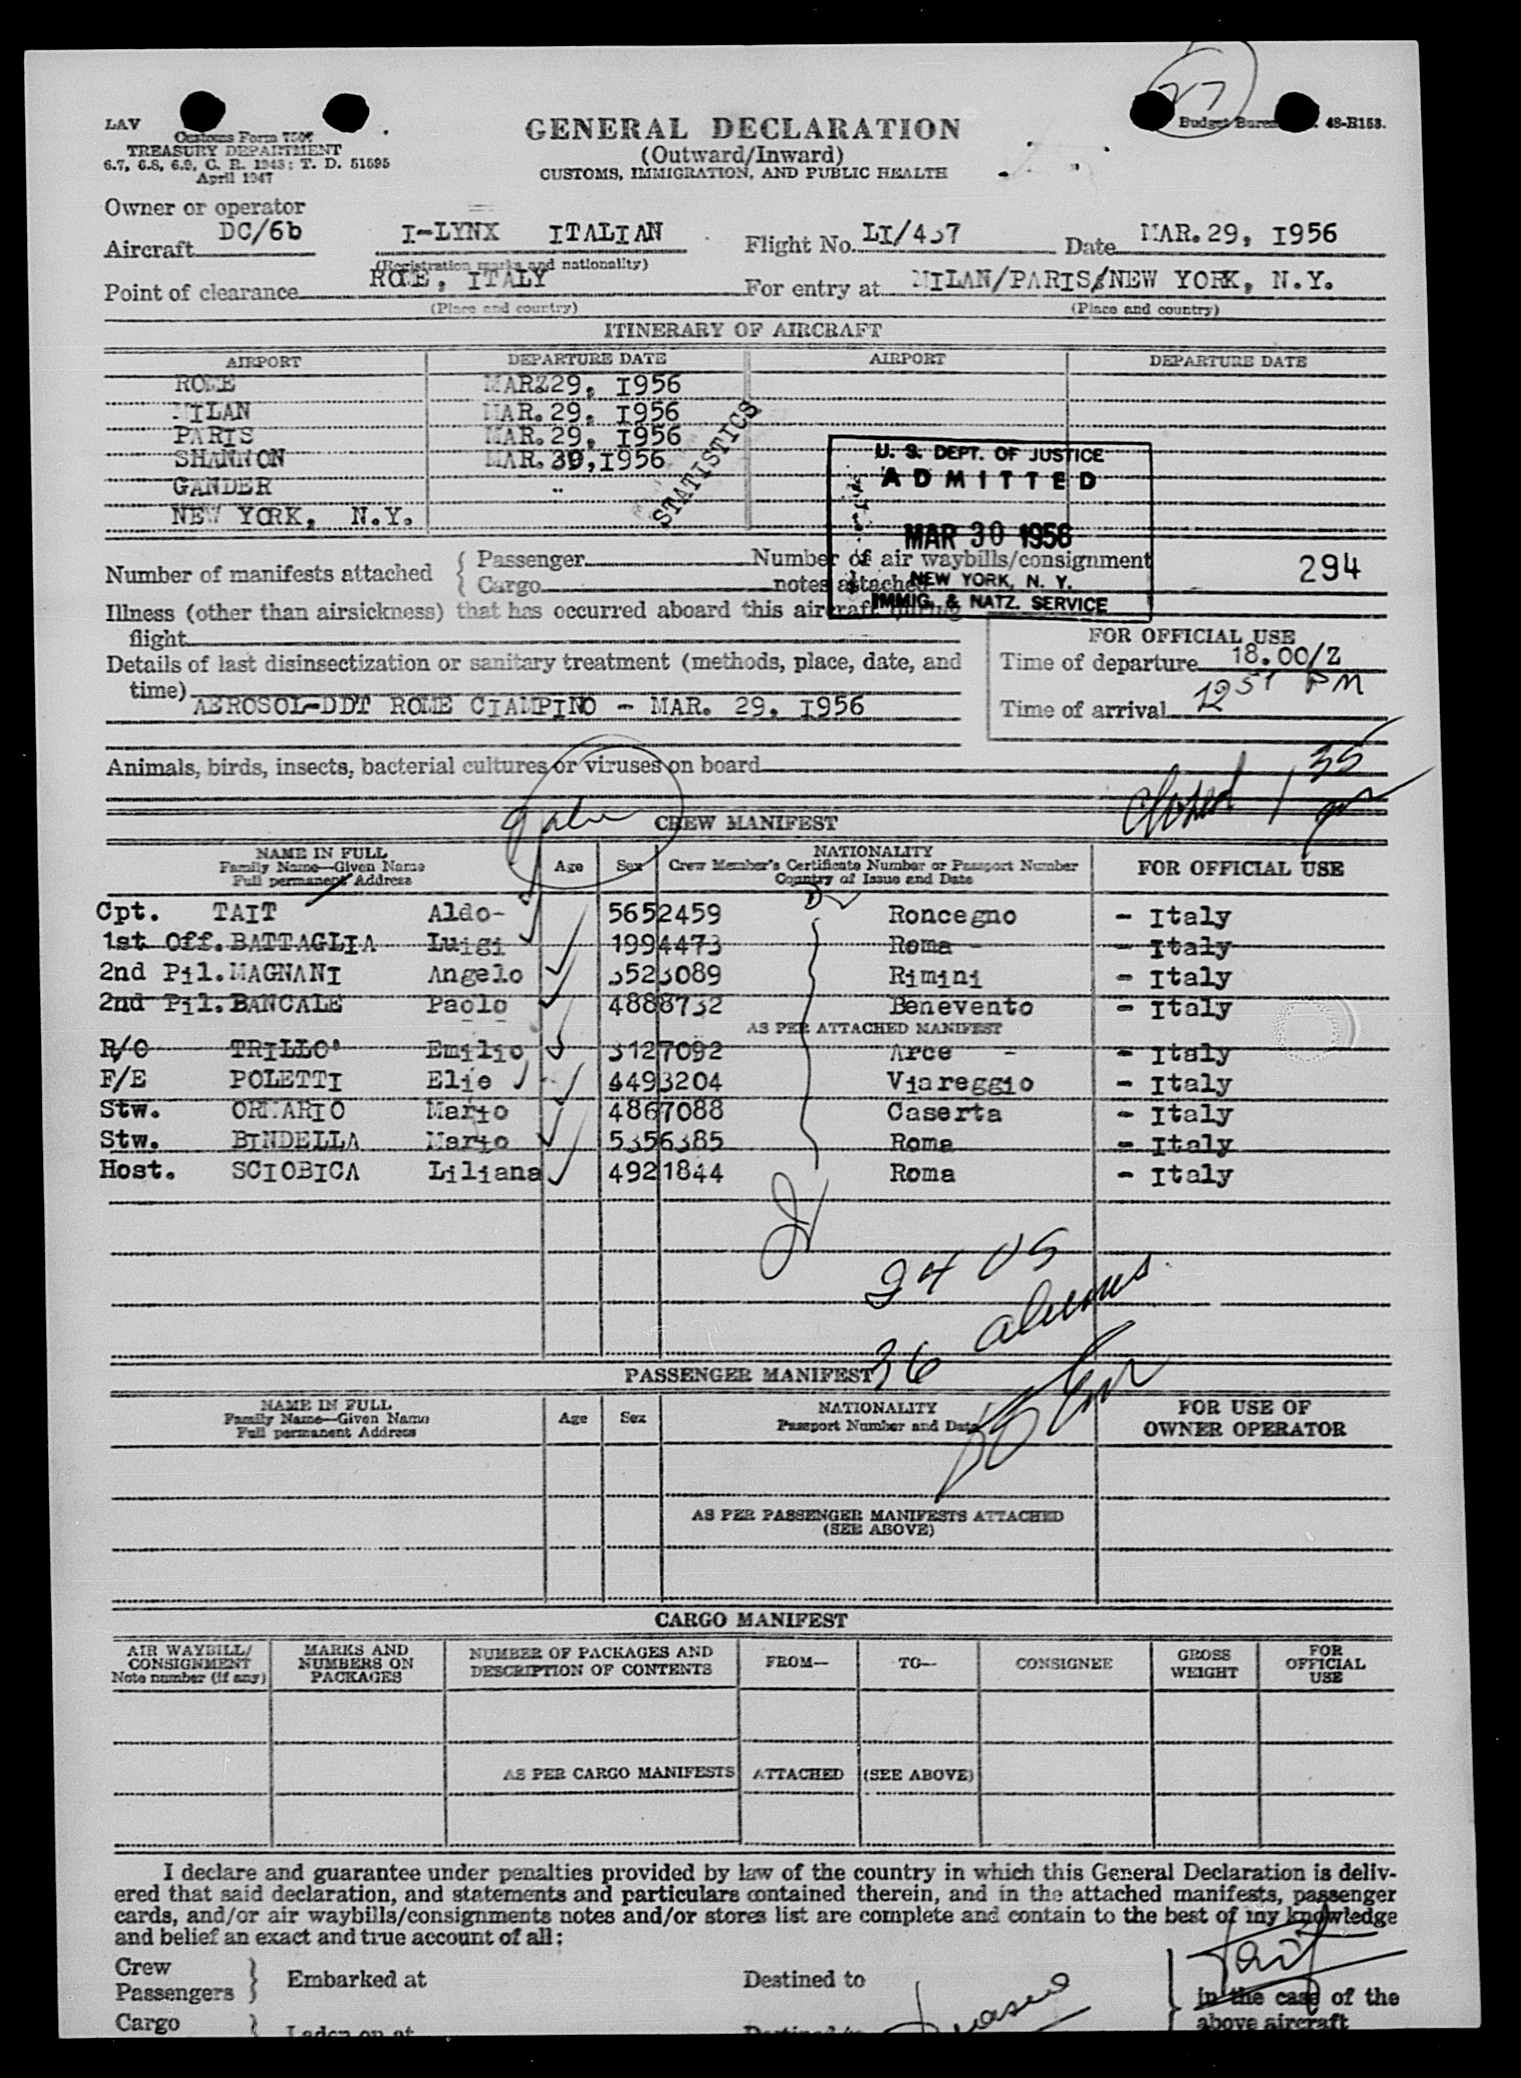 27
LAV
Customs Form 7507
TREASURY DEPARTMENT
6.7, 6.8, 6.9, C. R. 1943; T. D. 51595
April 1947
GENERAL DECLARATION
(Outward/Inward)
CUSTOMS, IMMIGRATION, AND PUBLIC HEALTH
Budget Bureau 48-R153.
Owner or operator
Aircraft DC/6b I-LYNX ITALIAN Flight No. LI/437 Date MAR.29, I956
(Registration marks and nationality)
Point of clearance ROME, ITALY For entry at MILAN/PARIS/NEW YORK, N.Y.
(Place and country) (Place and country)
ITINERARY OF AIRCRAFT
AIRPORT DEPARTURE DATE AIRPORT DEPARTURE DATE
ROME MARZ29, I956
MILAN MAR.29, I956
PARIS MAR.29, I956
SHANNON MAR.30,I956
GANDER "
NEW YORK, N.Y.
STATISTICS
U. S. DEPT. OF JUSTICE
ADMITTED
MAR 30 1956
NEW YORK, N. Y.
IMMIG. & NATZ. SERVICE
Number of manifests attached { Passenger Number of air waybills/consignment
{ Cargo notes attached 294
Illness (other than airsickness) that has occurred aboard this aircraft during
flight
Details of last disinsectization or sanitary treatment (methods, place, date, and
time) AEROSOL-DDT ROME CIAMPINO - MAR. 29, I956
FOR OFFICIAL USE
Time of departure 18.00/Z
Time of arrival 1251 PM
Animals, birds, insects, bacterial cultures or viruses on board
Closed 1 35
CREW MANIFEST
NAME IN FULL
Family Name—Given Name
Full permanent Address
Age Sex
NATIONALITY
Crew Member's Certificate Number or Passport Number
Country of Issue and Date
FOR OFFICIAL USE
Cpt. TAIT Aldo- 5652459 Roncegno - Italy
1st Off. BATTAGLIA Luigi 1994473 Roma - - Italy
2nd Pil. MAGNANI Angelo 3523089 Rimini - Italy
2nd Pil. BANCALE Paolo 4888732 Benevento - Italy
AS PER ATTACHED MANIFEST
R/O TRILLO' Emilio 3127092 Arce - - Italy
F/E POLETTI Elio 4493204 Viareggio - Italy
Stw. ORMARIO Mario 4867088 Caserta - Italy
Stw. BINDELLA Mario 5356385 Roma - Italy
Host. SCIOBICA Liliana 4921844 Roma - Italy
24 US
36 aliens
PASSENGER MANIFEST
NAME IN FULL
Family Name—Given Name
Full permanent Address
Age Sex
NATIONALITY
Passport Number and Date
FOR USE OF
OWNER OPERATOR
AS PER PASSENGER MANIFESTS ATTACHED
(SEE ABOVE)
CARGO MANIFEST
AIR WAYBILL/
CONSIGNMENT
Note number (if any)
MARKS AND
NUMBERS ON
PACKAGES
NUMBER OF PACKAGES AND
DESCRIPTION OF CONTENTS
FROM—
TO—
CONSIGNEE
GROSS
WEIGHT
FOR
OFFICIAL
USE
AS PER CARGO MANIFESTS ATTACHED (SEE ABOVE)
I declare and guarantee under penalties provided by law of the country in which this General Declaration is deliv-
ered that said declaration, and statements and particulars contained therein, and in the attached manifests, passenger
cards, and/or air waybills/consignments notes and/or stores list are complete and contain to the best of my knowledge
and belief an exact and true account of all:
Tait
Crew
Passengers } Embarked at Destined to } in the case of the
Cargo } Laden on at Destined to above aircraft